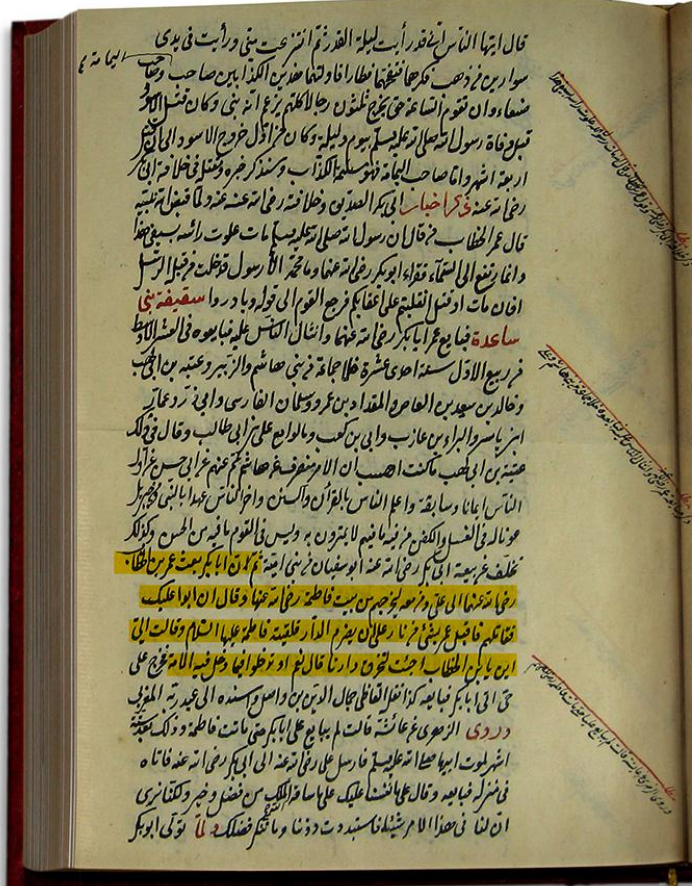 قال ايها الناس اني قد رأيت ليلة القدر ثم انتزعت مني ورأيت في يدي
سوارين من ذهب فكرهتهما فنفختهما فطارا فاولتهما هذين الكذابين صاحب
اليمامة
صنعاء ولن تقوم الساعة حتى يخرج ثلثون رجالا كلهم يزعم انه نبي وكان قتل الاسود
قبل وفاة رسول الله صلى الله عليه وسلم بيوم وليلة وكان من اول خروج الاسود الى ان قتل
اربعة اشهر واما صاحب اليمامة فهو مسيلمة الكذاب وسنذكر خبره ومقتله في خلافة ابي بكر
رضي الله عنه ذكر اخبار ابي بكر الصديق وخلافته رضي الله عنه ولما قبض الله نبيه
قال عمر بن الخطاب من قال ان رسول الله صلى الله عليه وسلم مات علوت رأسه بسيفي هذا
وانما ارتفع الى السماء فقراء ابو بكر رضي الله عنهما وما محمد الا رسول قد خلت من قبله الرسل
افان مات او قتل انقلبتم على اعقابكم فرجع القوم الى قوله وبادروا سقيفة بني
ساعدة فبايع عمر ابا بكر رضي الله عنهما وانثال الناس عليه فبايعوه في العشر الاوسط
من ربيع الاول سنة احدى عشرة خلا جماعة من بني هاشم والزبير وعتبه بن ابي لهب
وخالد بن سعيد بن العاص والمقداد بن عمرو وسلمان الفارسي وابي ذر وعمار
ابن ياسر والبراء بن عازب وابي بن كعب ومالوا مع علي بن ابي طالب وقال في ذلك
عتبة بن ابي لهب ما كنت احسب ان الامر منصرف عن هاشم ثم منهم عن ابي حسن عن اول
الناس ايمانا وسابقة واعلم الناس بالقرآن والسنن واخر الناس عهدا بالنبي ومن جبريل
عون له في الغسل والكفن من فيه ما فيهم لا يمترون به وليس في القوم ما فيه من الحسن وكذلك
تخلف عن بيعة ابي بكر رضي الله عنه ابو سفيان من بني امية ثم ان ابا بكر بعث عمر بن الخطاب
رضي الله عنهما الى علي ومن معه ليخرجهم من بيت فاطمة رضي الله عنها وقال ان ابوا عليك
فقاتلهم فاقبل عمر بشئ من نار على ان يضرم الدار فلقيته فاطمة عليها السلام وقالت الى
اين يا ابن الخطاب اجئت لتحرق دارنا قال نعم او تدخلوا فيما دخل فيه الامة فخرج علي
حتى اتى ابا بكر فبايعه كذا نقل القاضي جمال الدين بن واصل واسنده الى عبد ربه المغربي
وروى الزهري عن عائشة قالت لم يبايع علي ابا بكر حتى ماتت فاطمة وذلك بعد ستة
اشهر لموت ابيها صلى الله عليه وسلم فارسل علي رضي الله عنه الى ابي بكر رضي الله عنه فاتاه
في منزله فبايعه وقال علي ما نفسنا عليك ما ساقه الله اليك من فضل وخير ولكنا نرى
ان لنا في هذا الامر شيئا فاستبددت دوننا وما ننكر فضلك ولما تولى ابو بكر